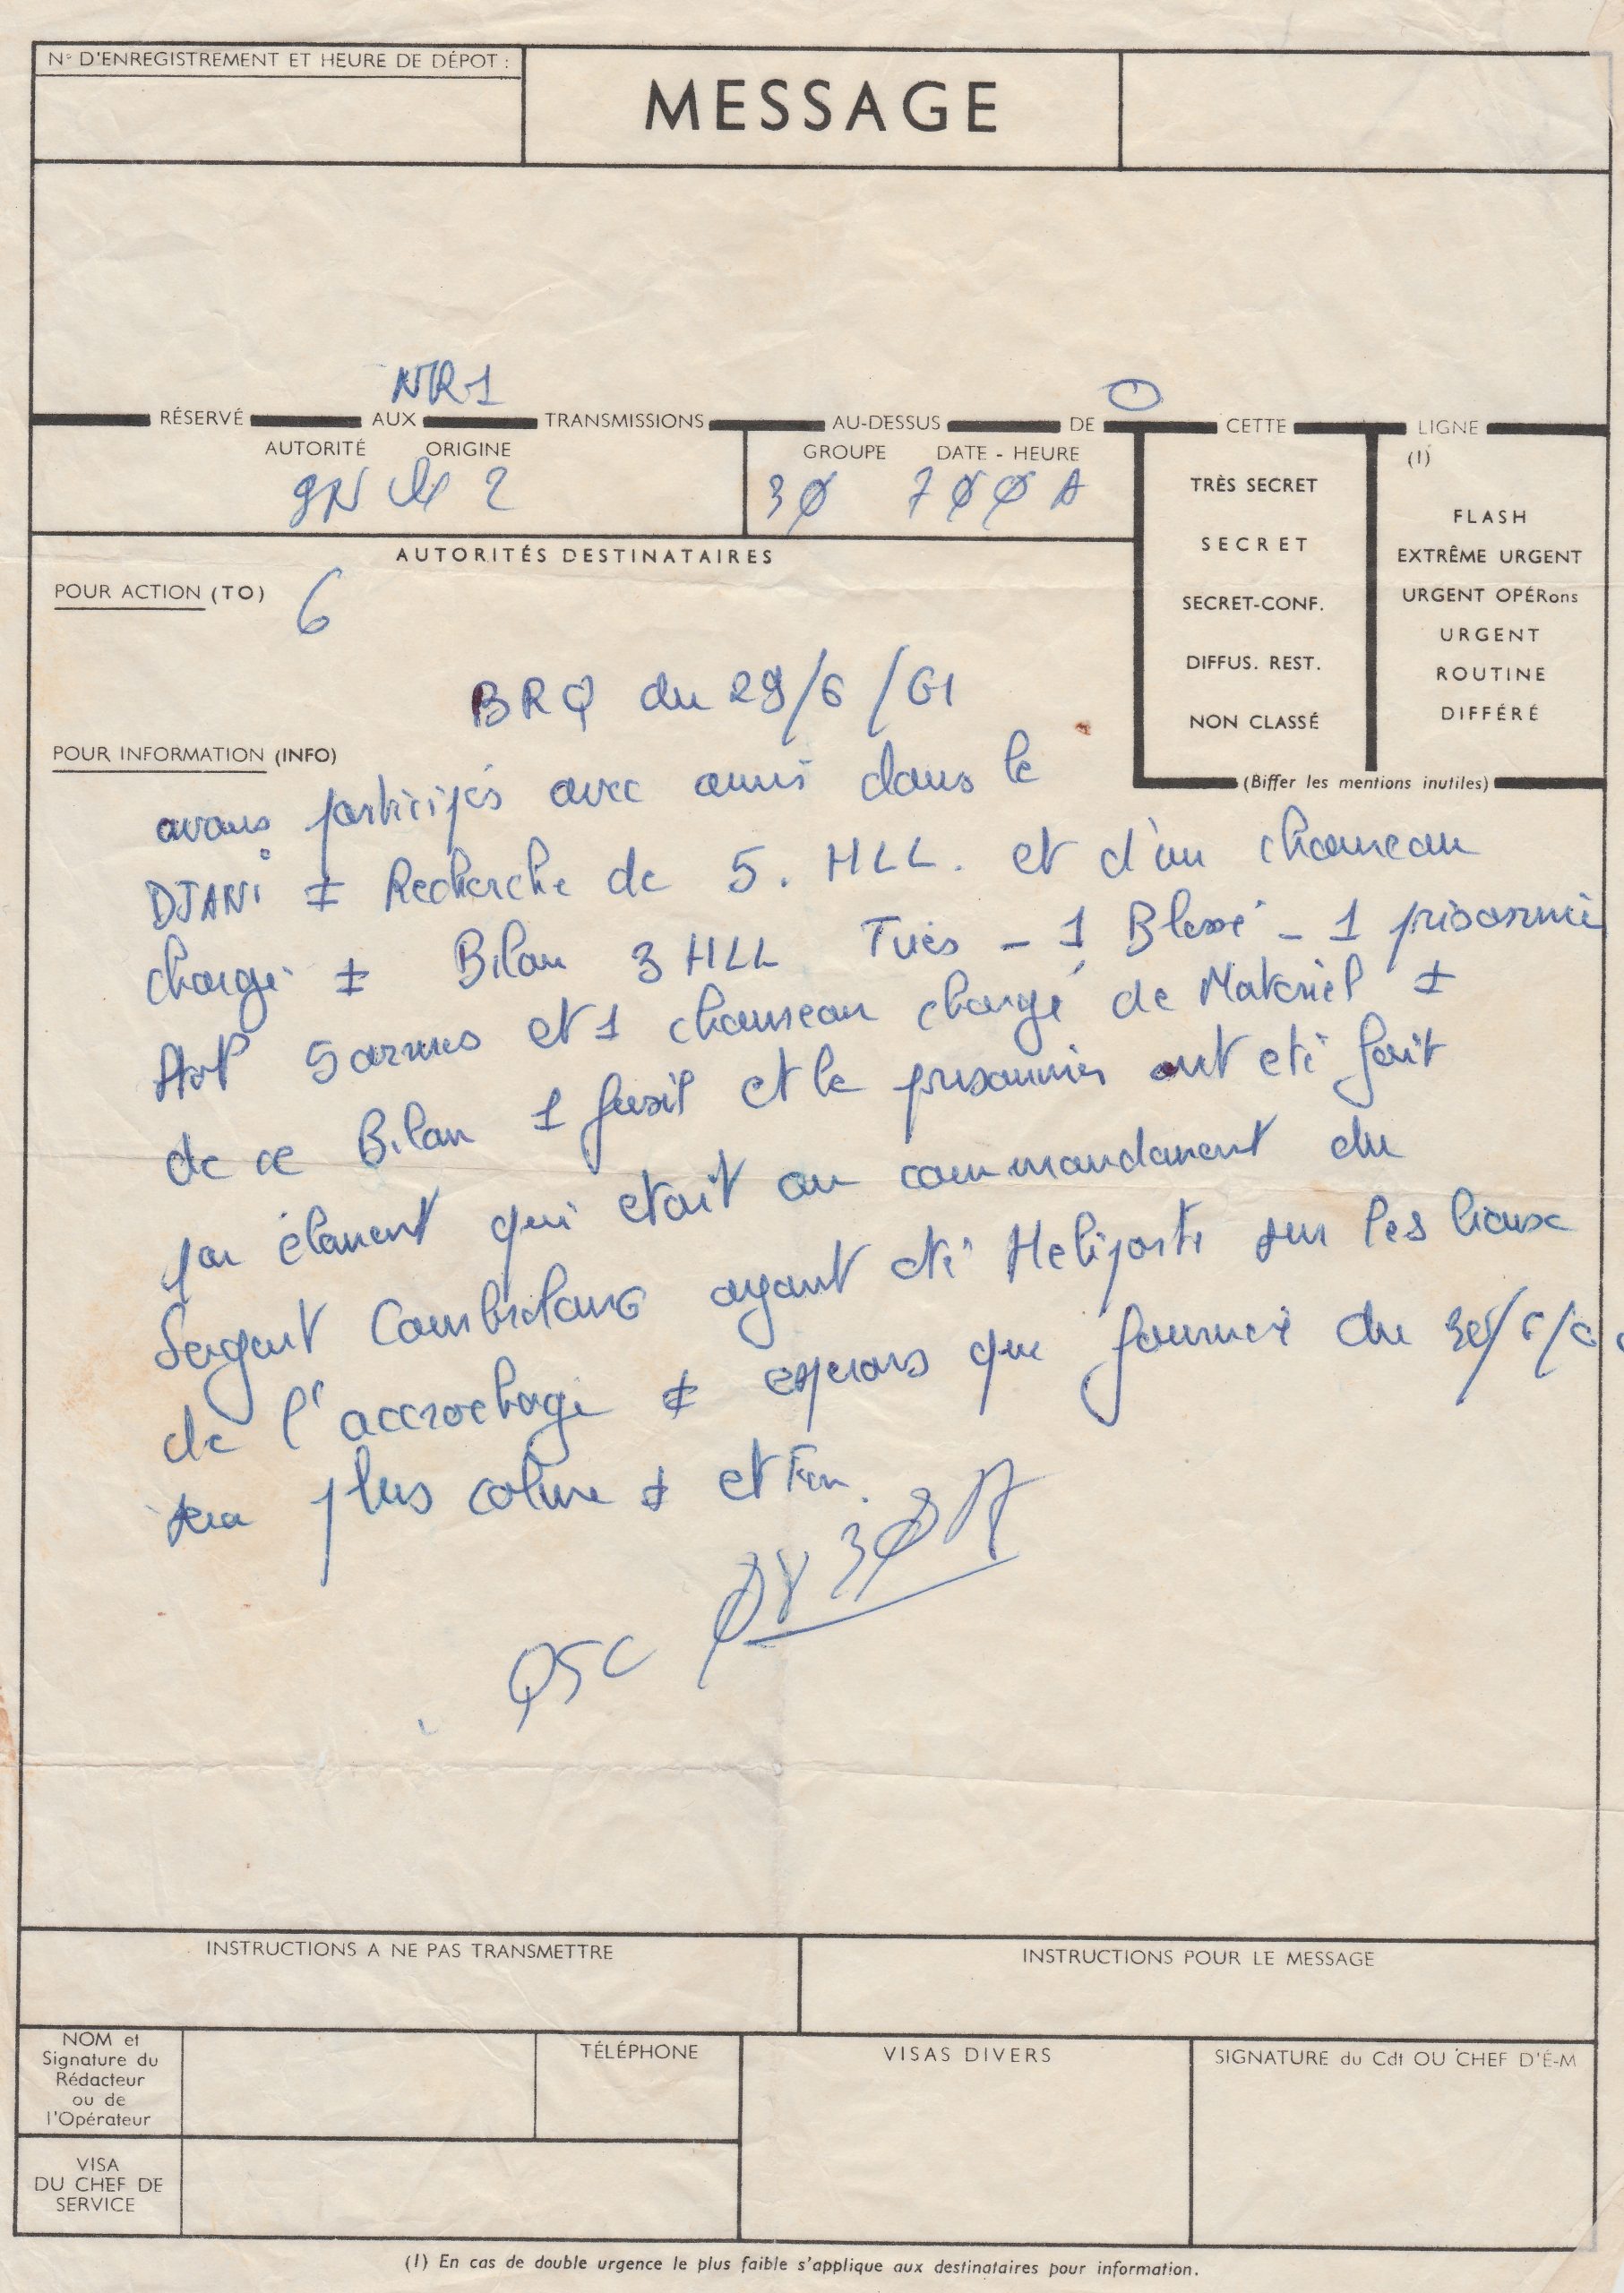 N° D'ENREGISTREMENT ET HEURE DE DÉPOT :
MESSAGE
NR1
RÉSERVÉ AUX TRANSMISSIONS AU-DESSUS DE CETTE LIGNE
AUTORITÉ ORIGINE
GROUPE DATE - HEURE
(1)
2
3Ø 7ØØ A
TRÈS SECRET
SECRET
SECRET-CONF.
DIFFUS. REST.
NON CLASSÉ
FLASH
EXTRÊME URGENT
URGENT OPÉRons
URGENT
ROUTINE
DIFFÉRÉ
(Biffer les mentions inutiles)
AUTORITÉS DESTINATAIRES
POUR ACTION (TO) 6
BRQ du 29/6/61
POUR INFORMATION (INFO)
avons participés avec dans le
DJANI ± Recherche de 5. HLL. et d'un chameau
chargé ± Bilan 3 HLL Tués - 1 Blessé - 1 prisonnie
5 armes et 1 chameau chargé de Materiel ±
de ce Bilan 1 fusil et le prisonnier ont eté fait
par élement qui etait au commandement du
Sergent ayant eté Heliporté sur les lieux
de l'accrochage ± esperons que journee du 30/6/6
sera plus calme ± et Fin.
QSC Ø8 3Ø A
INSTRUCTIONS A NE PAS TRANSMETTRE
INSTRUCTIONS POUR LE MESSAGE
NOM et
Signature du
Rédacteur
ou de
l'Opérateur
TÉLÉPHONE
VISAS DIVERS
SIGNATURE du Cdt OU CHEF D'É-M
VISA
DU CHEF DE
SERVICE
(1) En cas de double urgence le plus faible s'applique aux destinataires pour information.